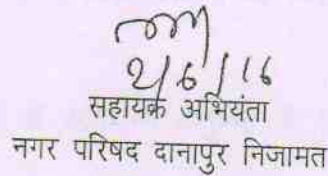 2/6/16
सहायक अभियंता
नगर परिषद दानापुर निजामत